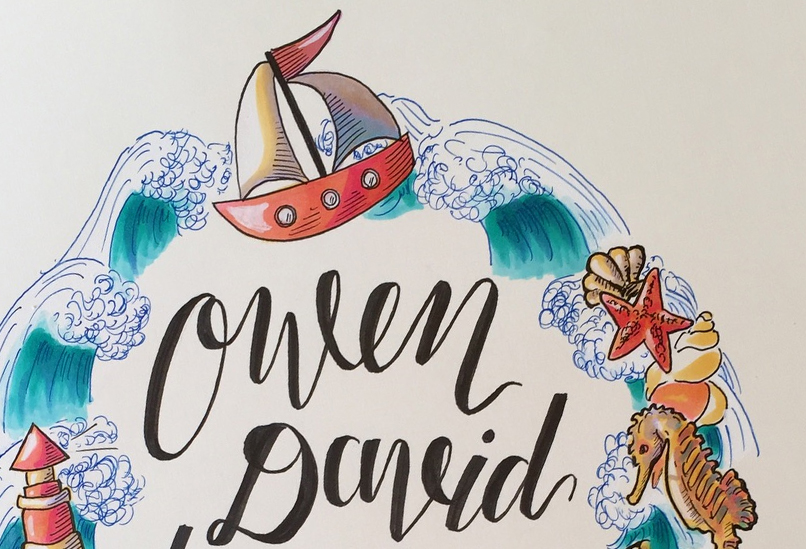 Owen
David